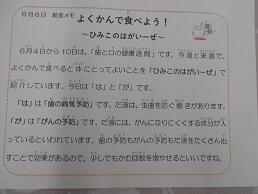 6月6日 給食メモ よくかんで食べよう!
~ひみこのはがい~ぜ~
6月4日から10日は、「歯と口の健康週間」です。今週と来週で、
よくかんで食べると体にとってよいことを「ひみこのはがい~ぜ」で
紹介しています。今日は「は」と「が」です。
「は」は「歯の病気予防」です。だ液は、虫歯を防ぐ働きがあります。
「が」は「がんの予防」です。だ液には、がんになりにくくする成分が入
っているといわれています。歯の予防もがんの予防もだ液をたくさん出
すことで効果があるので、少しでもかむ回数を増やせるといいですね。